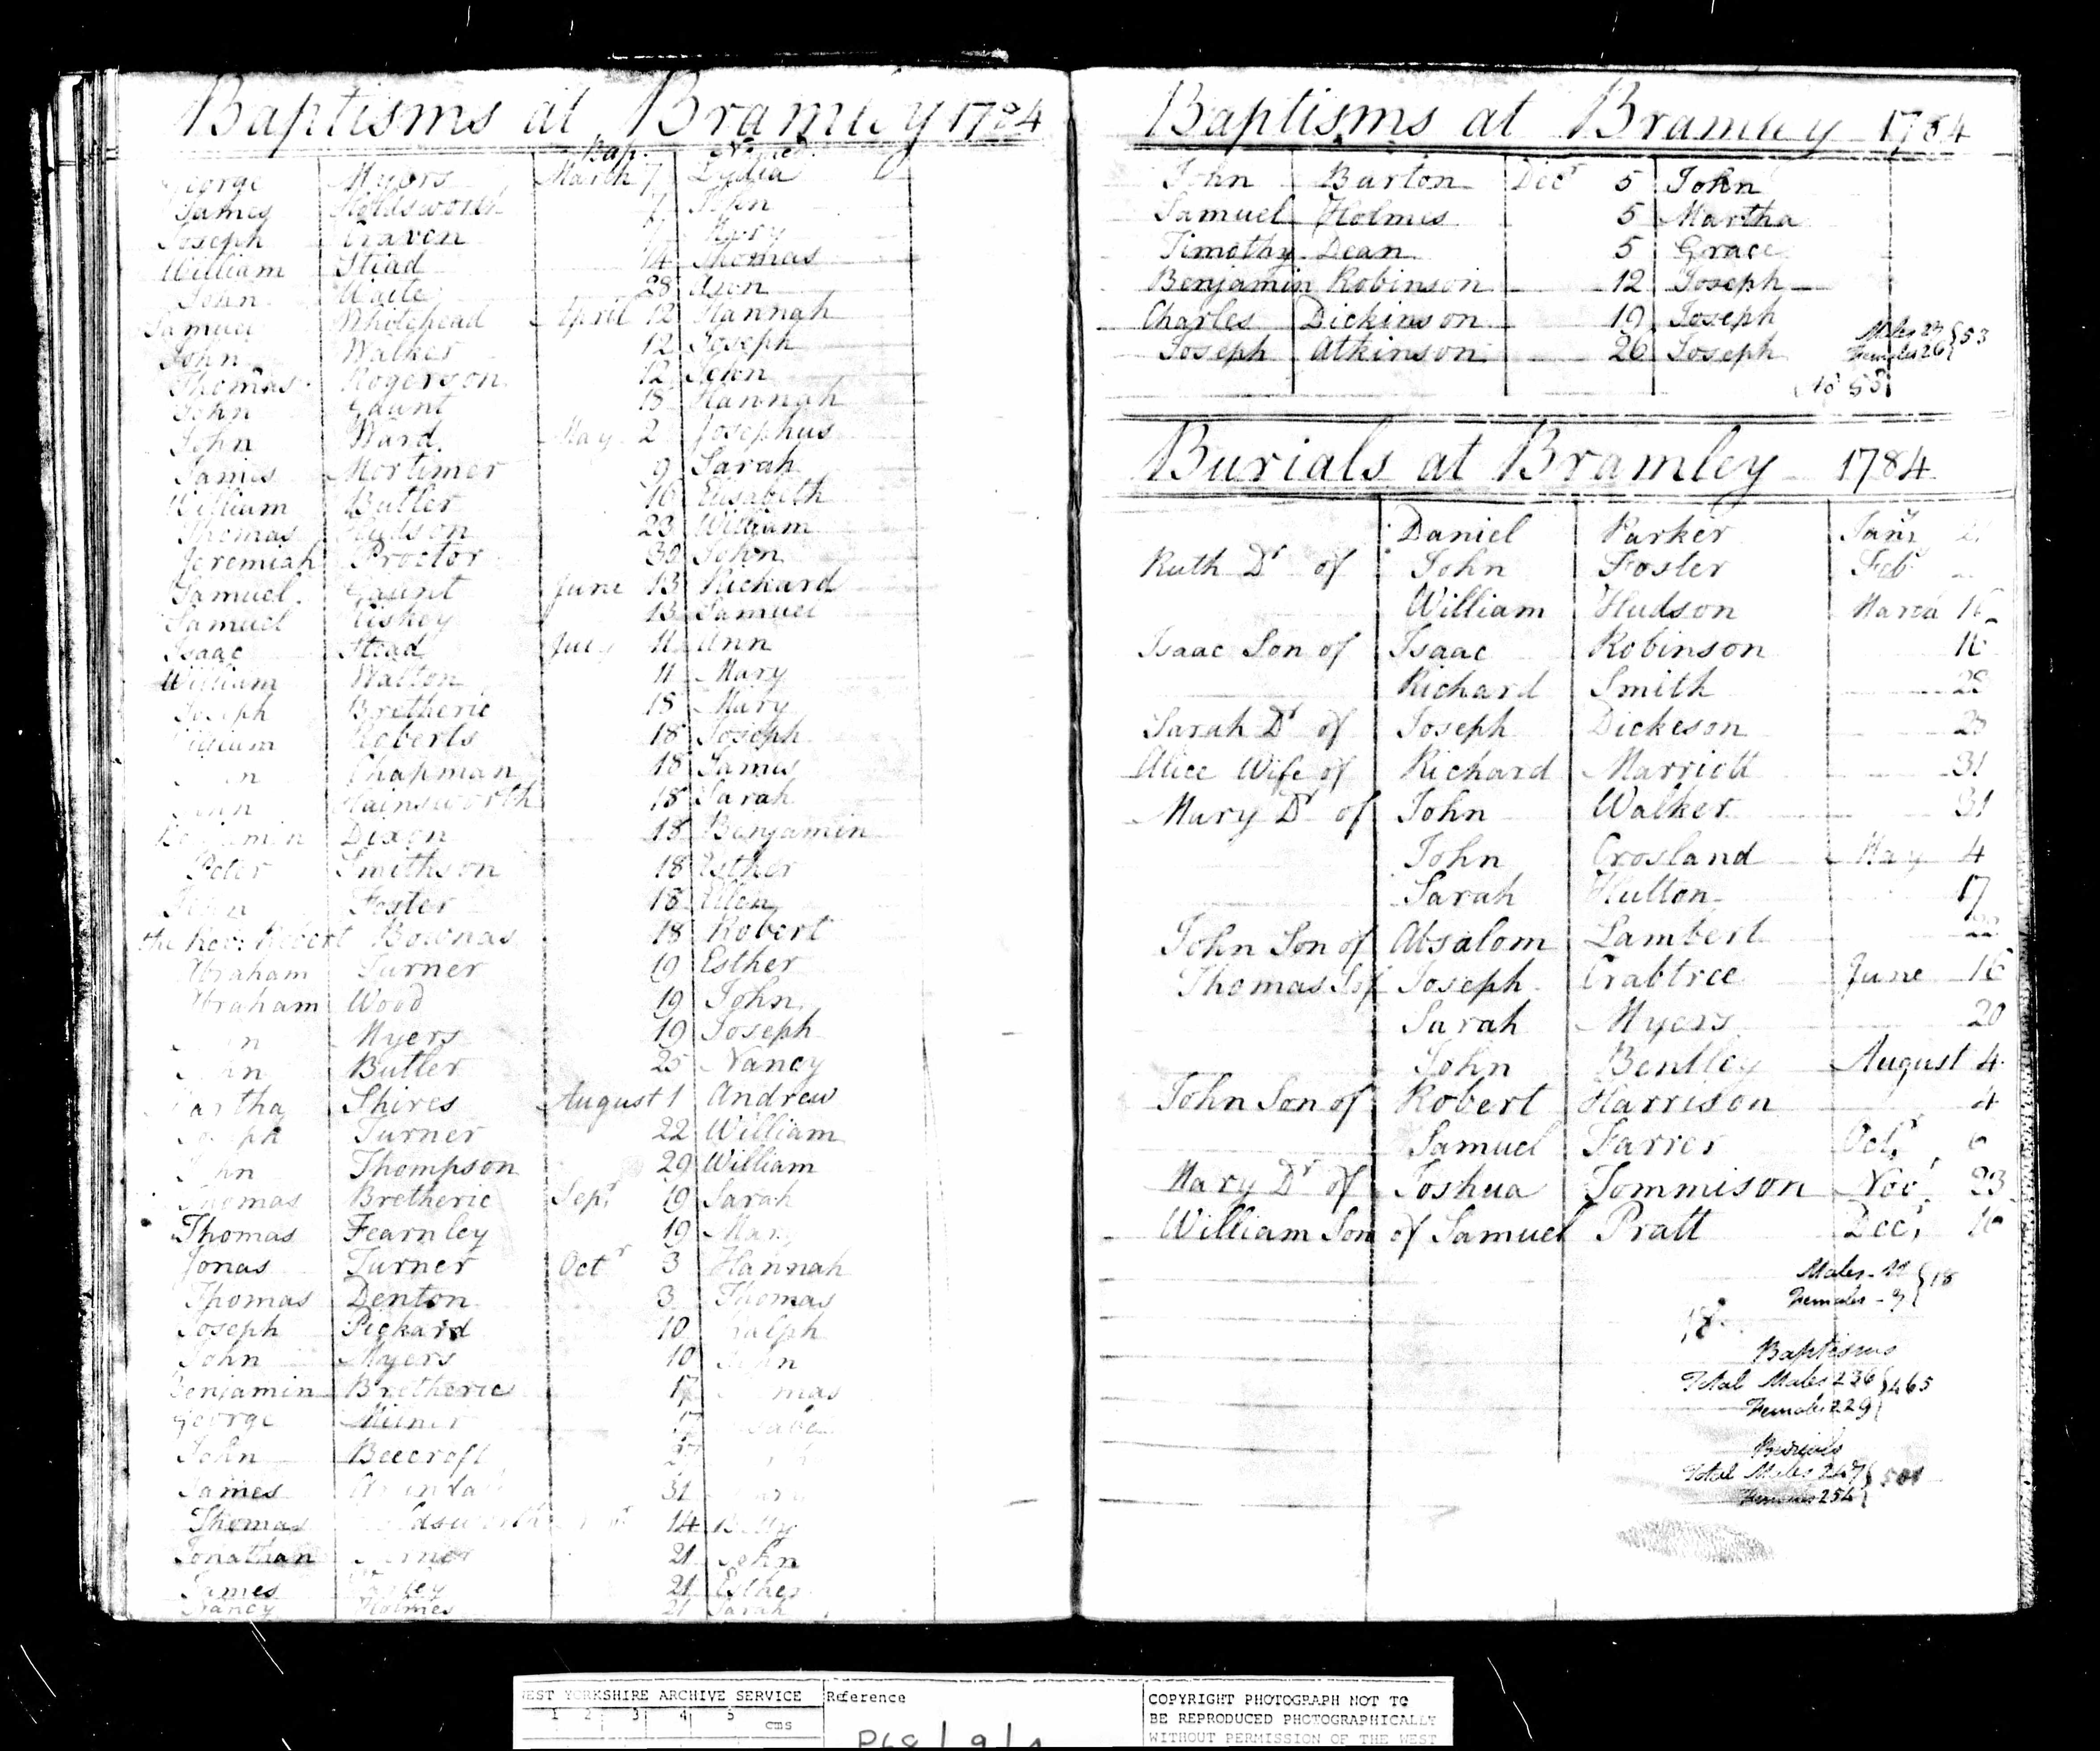 Baptisms at Bramley 1784
Bap. Names
George Myers March 7 Lydia
James Holdsworth 7 John
Joseph Craven 7 Mary
William Stead 14 Thomas
John Waite 28 Ann
Samuel Whitehead April 12 Hannah
John Walker 12 Joseph
Thomas Rogerson 12 John
John Gaunt 18 Hannah
John Ward May 2 Josephus
James Mortimer 9 Sarah
William Butler 16 Elisabeth
Thomas Hudson 23 William
Jeremiah Proctor 30 John
Samuel Gaunt June 13 Richard
Samuel 13 Samuel
Isaac Stead July 11 Ann
William Walton 11 Mary
Joseph Bretheric 18 Mary
William Roberts 18 Joseph
Chapman 18 James
Hainsworth 18 Sarah
Benjamin Dixon 18 Benjamin
Peter Smithson 18 Esther
John Foster 18 Ellen
the Rev: Robert Bownas 18 Robert
Abraham Turner 19 Esther
Abraham Wood 19 John
Myers 19 Joseph
John Butler 25 Nancy
Martha Shires August 1 Andrew
Joseph Turner 22 William
John Thompson 29 William
Thomas Bretheric Sepr 19 Sarah
Thomas Fearnley 19 Mary
Jonas Turner Octr 3 Hannah
Thomas Denton 3 Thomas
Joseph Pickard 10 Ralph
John Myers 10 John
Benjamin Bretheric 17
George Milner 17
John Beecroft
James 31
Thomas 14 Betty
Jonathan 21 John
James 21 Esther
Nancy Holmes 21 Sarah
Baptisms at Bramley 1784
John Barton Decr 5 John
Samuel Holmes 5 Martha
Timothy Dean 5 Grace
Benjamin Robinson 12 Joseph
Charles Dickinson 19 Joseph
Joseph Atkinson 26 Joseph
Males 27 } 53
Females 26
53
Burials at Bramley 1784
Daniel Parker Jany
Ruth Dr of John Foster Feb
William Hudson March 16
Isaac Son of Isaac Robinson 16
Richard Smith 28
Sarah Dr of Joseph Dickeson
Alice Wife of Richard Marriott 31
Mary Dr of John Walker 31
John Crosland May 4
Sarah Hutton 17
John Son of Absalom Lambert 22
Thomas S of Joseph Crabtree June 16
Sarah Myers 20
John Bentley August 4
John Son of Robert Harrison 4
Samuel Farrer Octr 6
Mary Dr of Joshua Tommison Novr 23
William Son of Samuel Pratt Decr
Males - 11 } 18
Females - 7
18
Baptisms
Total Males 236 } 465
Females 229
Burials
Total Males 247 } 501
Females 254
WEST YORKSHIRE ARCHIVE SERVICE
1 2 3 4 5
cms
Reference
COPYRIGHT PHOTOGRAPH NOT TO
BE REPRODUCED PHOTOGRAPHICALLY
WITHOUT PERMISSION OF THE WEST